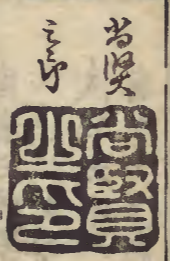 尚賢
之印
尚賢
之印